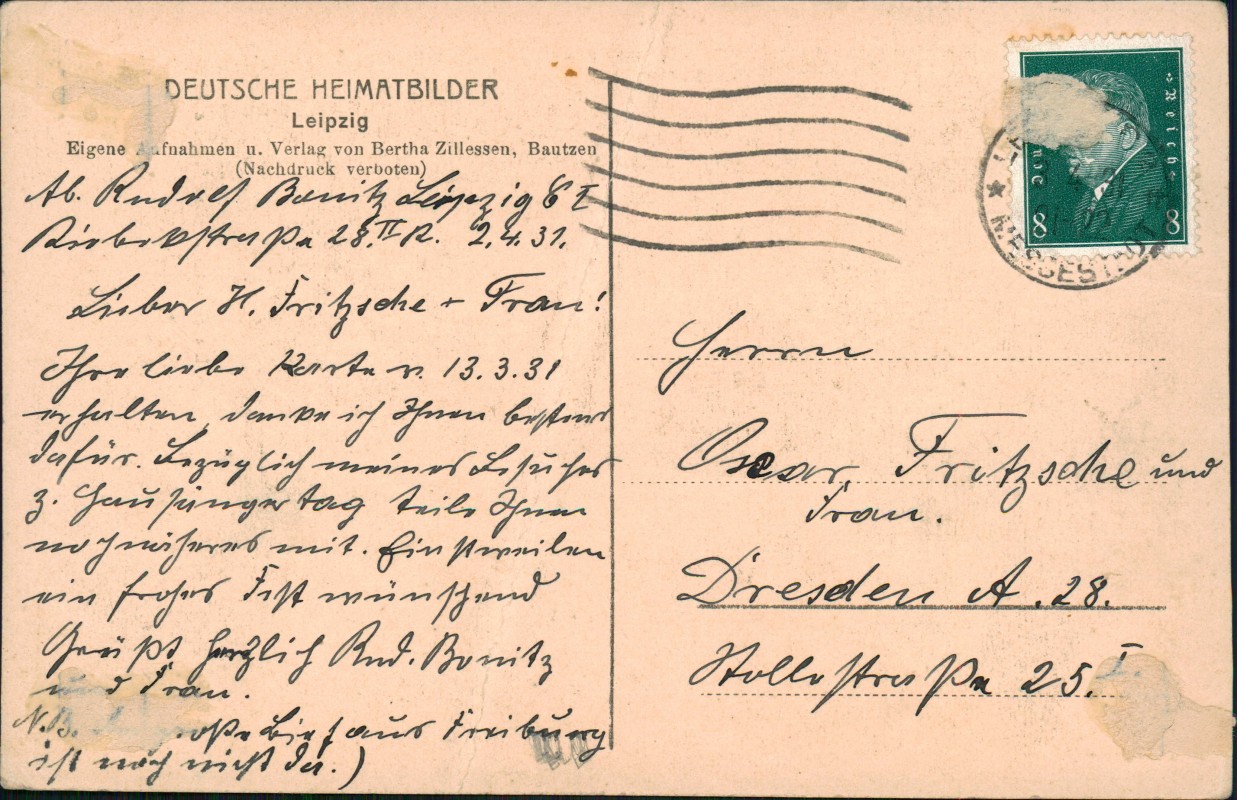 DEUTSCHE HEIMATBILDER
Leipzig
Eigene Aufnahmen u. Verlag von Bertha Zillessen, Bautzen
(Nachdruck verboten)
Ab. Rudolf Bonitz Leipzig C I
Riebekstraße 28.II R. 2.4.31.
Lieber H. Fritzsche + Frau!
Ihre liebe Karte v. 13.3.31
erhalten, danke ich Ihnen bestens
dafür. Bezüglich meines Besuches
z. Hausjüngertag teile Ihnen
noch näheres mit. Einstweilen
ein frohes Fest wünschend
Grüßt herzlich Rud. Bonitz
und Frau.
N.B. Bief aus Freiburg
ist noch nicht da.)
Reich
8 8
MESSESTADT
Herrn
Oscar Fritzsche und
Frau.
Dresden A. 28.
Stollestraße 25. I.